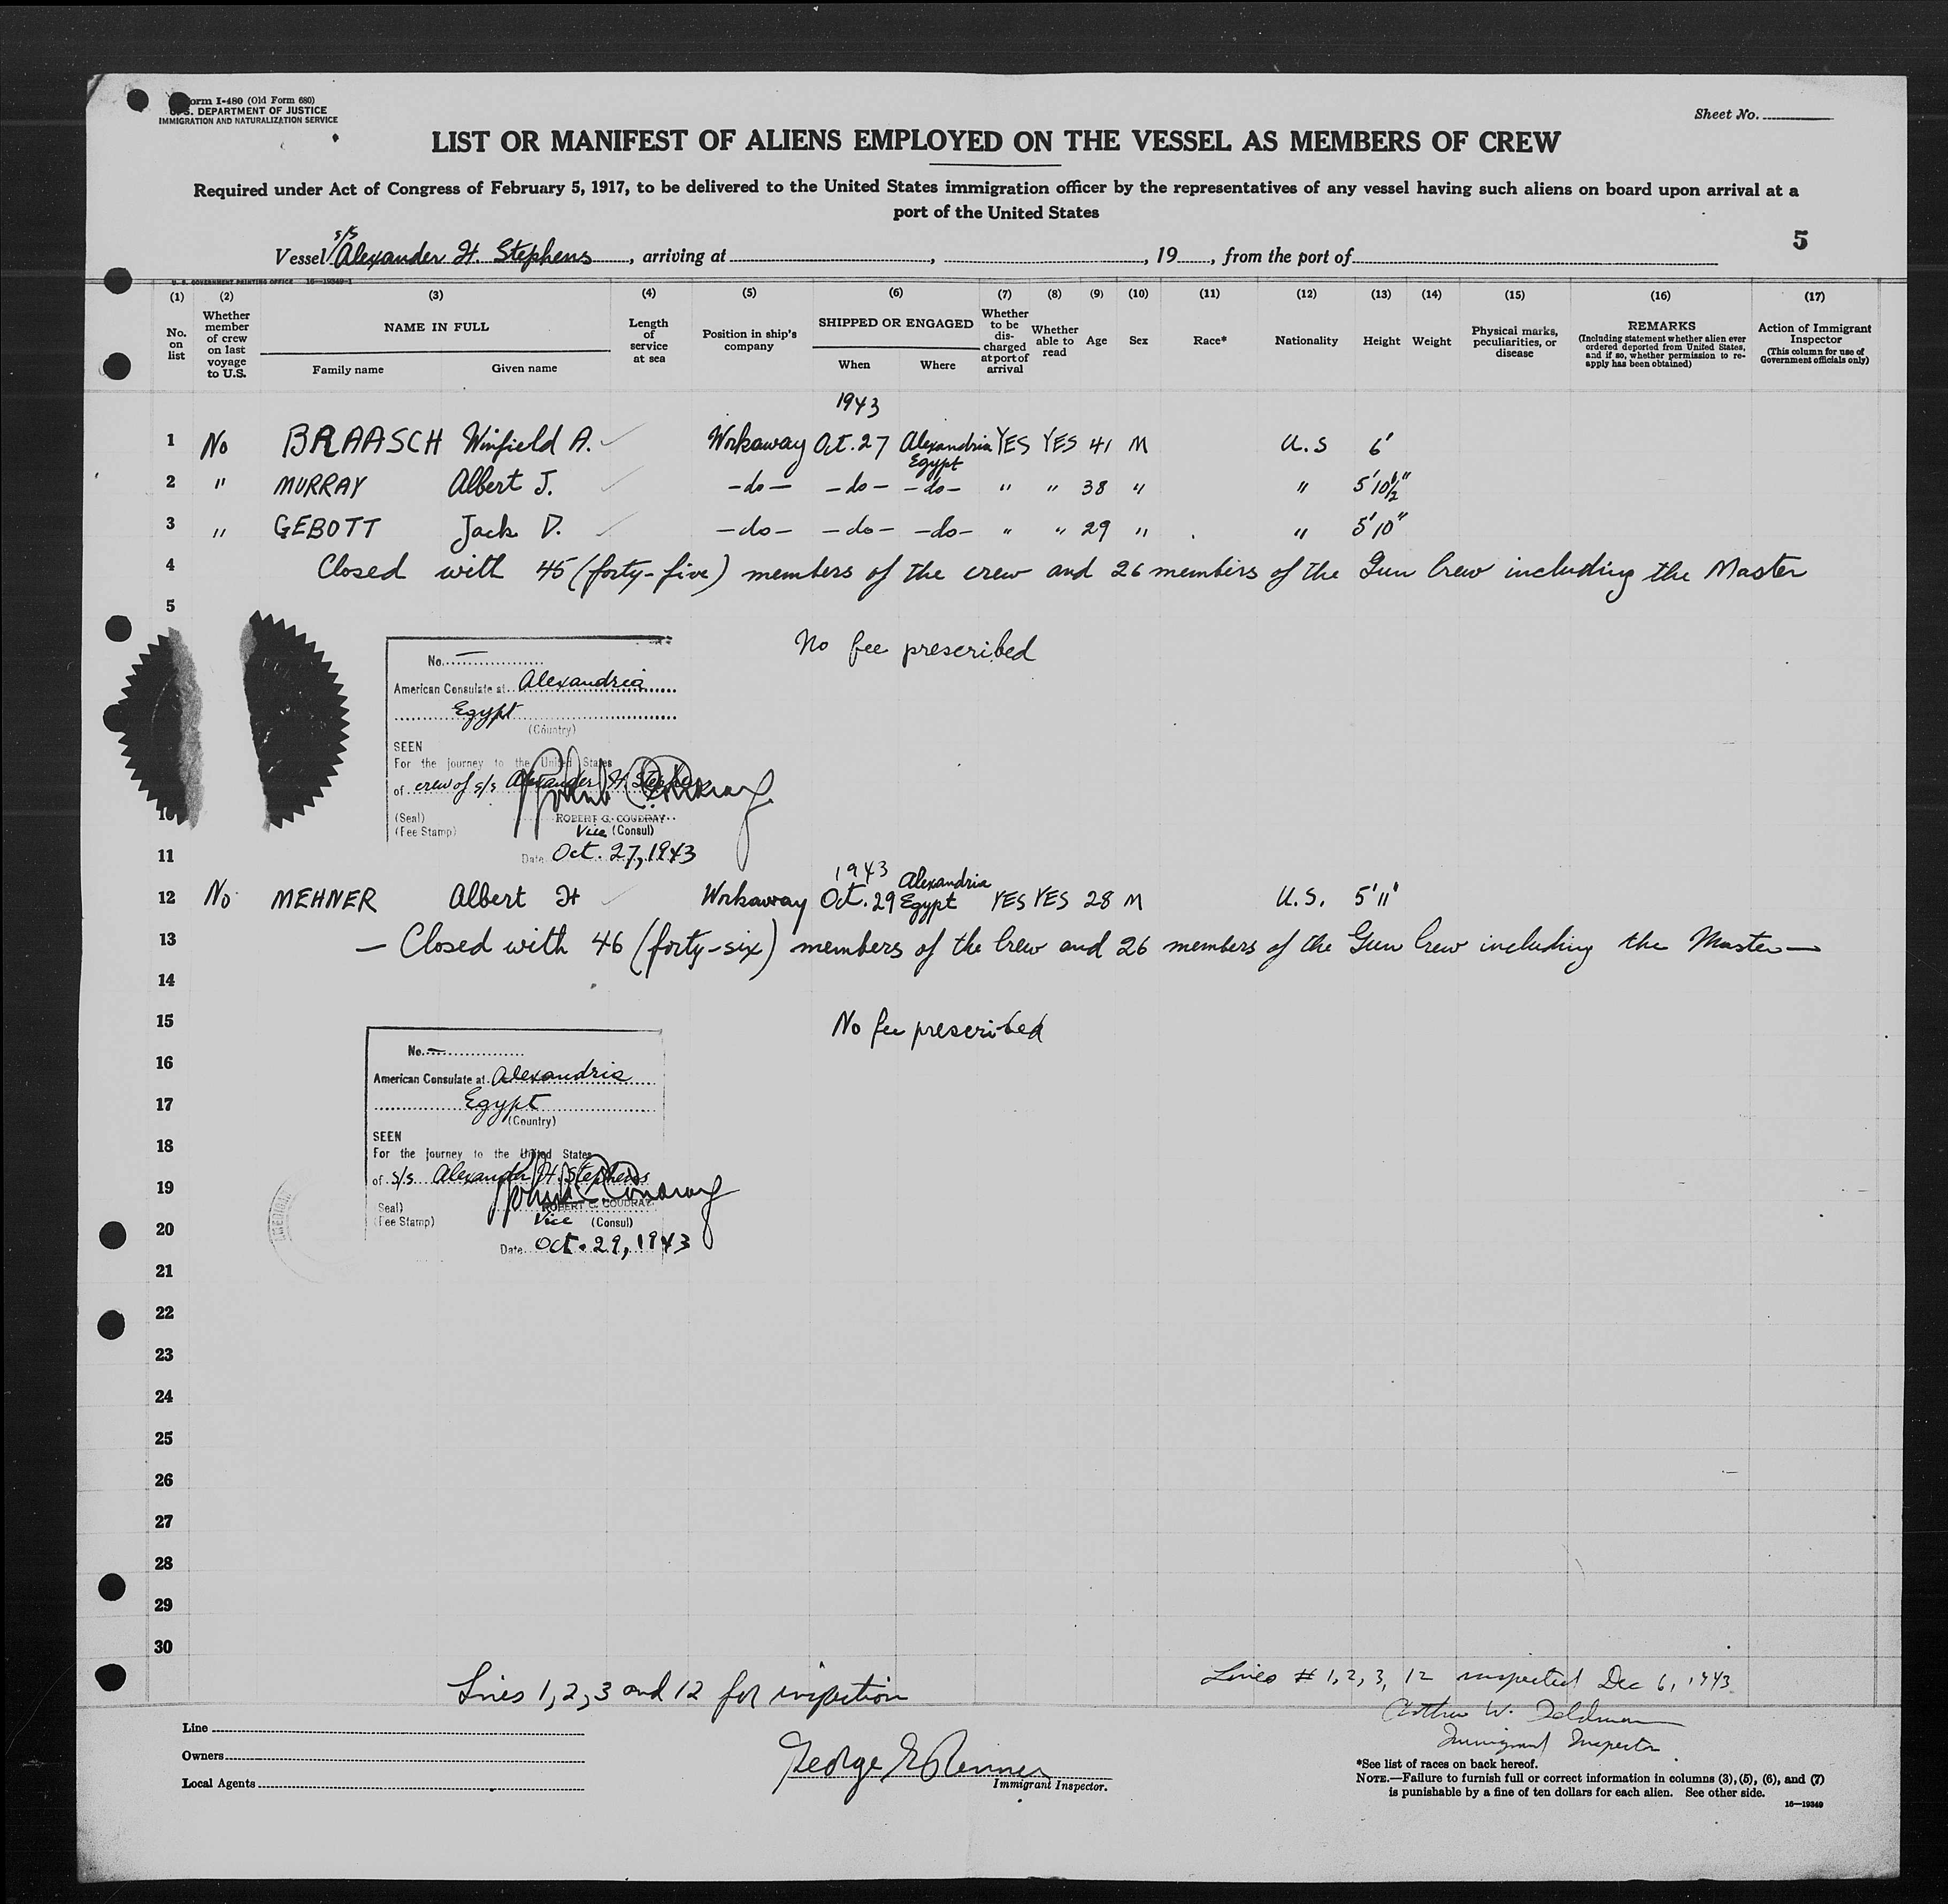 Form I-480 (Old Form 680)
U.S. DEPARTMENT OF JUSTICE
IMMIGRATION AND NATURALIZATION SERVICE
Sheet No.
LIST OR MANIFEST OF ALIENS EMPLOYED ON THE VESSEL AS MEMBERS OF CREW
Required under Act of Congress of February 5, 1917, to be delivered to the United States immigration officer by the representatives of any vessel having such aliens on board upon arrival at a
port of the United States
5
Vessel s/s Alexander H. Stephens, arriving at , , 19 , from the port of
U. S. GOVERNMENT PRINTING OFFICE 16—19349-1
(1) (2) (3) (4) (5) (6) (7) (8) (9) (10) (11) (12) (13) (14) (15) (16) (17)
No. on list
Whether member of crew on last voyage to U.S.
NAME IN FULL
Family name Given name
Length of service at sea
Position in ship's company
SHIPPED OR ENGAGED
When Where
Whether to be discharged at port of arrival
Whether able to read
Age
Sex
Race*
Nationality
Height
Weight
Physical marks, peculiarities, or disease
REMARKS
(Including statement whether alien ever ordered deported from United States, and if so, whether permission to re-apply has been obtained)
Action of Immigrant Inspector
(This column for use of Government officials only)
1943
1 No BRAASCH Winfield A. Workaway Oct. 27 Alexandria Egypt YES YES 41 M U.S 6'
2 " MURRAY Albert J. —do— —do— —do— " " 38 " " 5'10½"
3 " GEBOTT Jack D. —do— —do— —do— " " 29 " " 5'10"
4 Closed with 45 (forty-five) members of the crew and 26 members of the Gun Crew including the Master
5
No fee prescribed
No. —
American Consulate at Alexandria
Egypt
(Country)
SEEN
For the journey to the United States
of crew of s/s Alexander H. Stephens
(Seal) ROBERT G. COUDRAY
(Fee Stamp) Vice (Consul)
Date Oct. 27, 1943
10
11
1943
12 No MEHNER Albert H Workaway Oct. 29 Alexandria Egypt YES YES 28 M U.S. 5'11"
13 — Closed with 46 (forty-six) members of the Crew and 26 members of the Gun Crew including the Master —
14
15 No fee prescribed
No. —
16
American Consulate at Alexandria
17 Egypt
(Country)
SEEN
18 For the journey to the United States
of s/s Alexander H. Stephens
19
(Seal) ROBERT G. COUDRAY
(Fee Stamp) Vice (Consul)
20
Date Oct. 29, 1943
21
22
23
24
25
26
27
28
29
30
Lines 1, 2, 3 and 12 for inspection
Lines # 1, 2, 3, 12 inspected Dec 6, 1943
Arthur W. Feldman
Immigrant Inspector
Line
Owners
Local Agents
George
Immigrant Inspector.
*See list of races on back hereof.
NOTE.—Failure to furnish full or correct information in columns (3), (5), (6), and (7)
is punishable by a fine of ten dollars for each alien. See other side.
16—19349